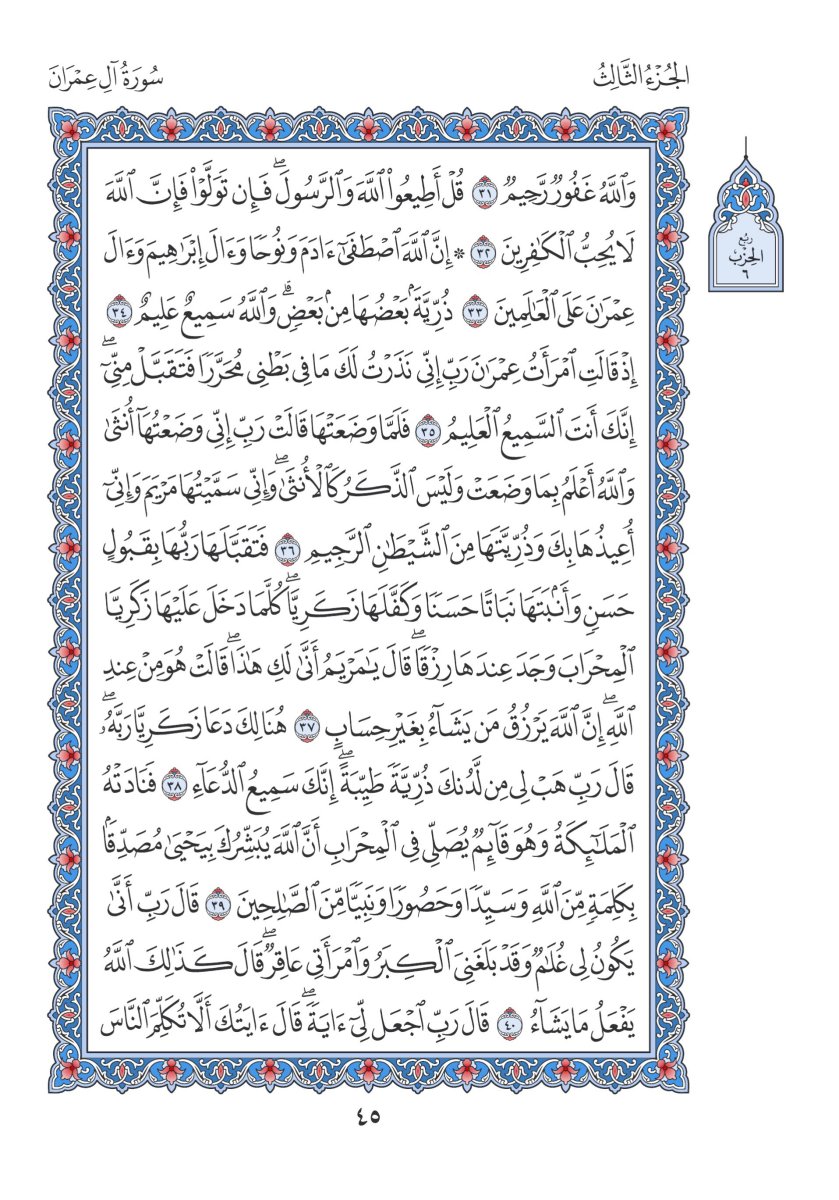 الجُزْءُ الثَّالِثُ
سُورَةُ آلِ عِمْرَانَ
وَٱللَّهُ غَفُورٌ رَّحِيمٌ ٣١ قُلْ أَطِيعُوا۟ ٱللَّهَ وَٱلرَّسُولَ ۖ فَإِن تَوَلَّوْا۟ فَإِنَّ ٱللَّهَ
لَا يُحِبُّ ٱلْكَٰفِرِينَ ٣٢ * إِنَّ ٱللَّهَ ٱصْطَفَىٰٓ ءَادَمَ وَنُوحًا وَءَالَ إِبْرَٰهِيمَ وَءَالَ
عِمْرَٰنَ عَلَى ٱلْعَٰلَمِينَ ٣٣ ذُرِّيَّةًۢ بَعْضُهَا مِنۢ بَعْضٍ ۗ وَٱللَّهُ سَمِيعٌ عَلِيمٌ ٣٤
إِذْ قَالَتِ ٱمْرَأَتُ عِمْرَٰنَ رَبِّ إِنِّى نَذَرْتُ لَكَ مَا فِى بَطْنِى مُحَرَّرًا فَتَقَبَّلْ مِنِّىٓ ۖ
إِنَّكَ أَنتَ ٱلسَّمِيعُ ٱلْعَلِيمُ ٣٥ فَلَمَّا وَضَعَتْهَا قَالَتْ رَبِّ إِنِّى وَضَعْتُهَآ أُنثَىٰ
وَٱللَّهُ أَعْلَمُ بِمَا وَضَعَتْ وَلَيْسَ ٱلذَّكَرُ كَٱلْأُنثَىٰ ۖ وَإِنِّى سَمَّيْتُهَا مَرْيَمَ وَإِنِّىٓ
أُعِيذُهَا بِكَ وَذُرِّيَّتَهَا مِنَ ٱلشَّيْطَٰنِ ٱلرَّجِيمِ ٣٦ فَتَقَبَّلَهَا رَبُّهَا بِقَبُولٍ
حَسَنٍ وَأَنۢبَتَهَا نَبَاتًا حَسَنًا وَكَفَّلَهَا زَكَرِيَّا ۖ كُلَّمَا دَخَلَ عَلَيْهَا زَكَرِيَّا
ٱلْمِحْرَابَ وَجَدَ عِندَهَا رِزْقًا ۖ قَالَ يَٰمَرْيَمُ أَنَّىٰ لَكِ هَٰذَا ۖ قَالَتْ هُوَ مِنْ عِندِ
ٱللَّهِ ۖ إِنَّ ٱللَّهَ يَرْزُقُ مَن يَشَآءُ بِغَيْرِ حِسَابٍ ٣٧ هُنَالِكَ دَعَا زَكَرِيَّا رَبَّهُۥ ۖ
قَالَ رَبِّ هَبْ لِى مِن لَّدُنكَ ذُرِّيَّةً طَيِّبَةً ۖ إِنَّكَ سَمِيعُ ٱلدُّعَآءِ ٣٨ فَنَادَتْهُ
ٱلْمَلَٰٓئِكَةُ وَهُوَ قَآئِمٌ يُصَلِّى فِى ٱلْمِحْرَابِ أَنَّ ٱللَّهَ يُبَشِّرُكَ بِيَحْيَىٰ مُصَدِّقًۢا
بِكَلِمَةٍ مِّنَ ٱللَّهِ وَسَيِّدًا وَحَصُورًا وَنَبِيًّا مِّنَ ٱلصَّٰلِحِينَ ٣٩ قَالَ رَبِّ أَنَّىٰ
يَكُونُ لِى غُلَٰمٌ وَقَدْ بَلَغَنِىَ ٱلْكِبَرُ وَٱمْرَأَتِى عَاقِرٌ ۖ قَالَ كَذَٰلِكَ ٱللَّهُ
يَفْعَلُ مَا يَشَآءُ ٤٠ قَالَ رَبِّ ٱجْعَل لِّىٓ ءَايَةً ۖ قَالَ ءَايَتُكَ أَلَّا تُكَلِّمَ ٱلنَّاسَ
رُبْع
الحِزْب
٦
٤٥